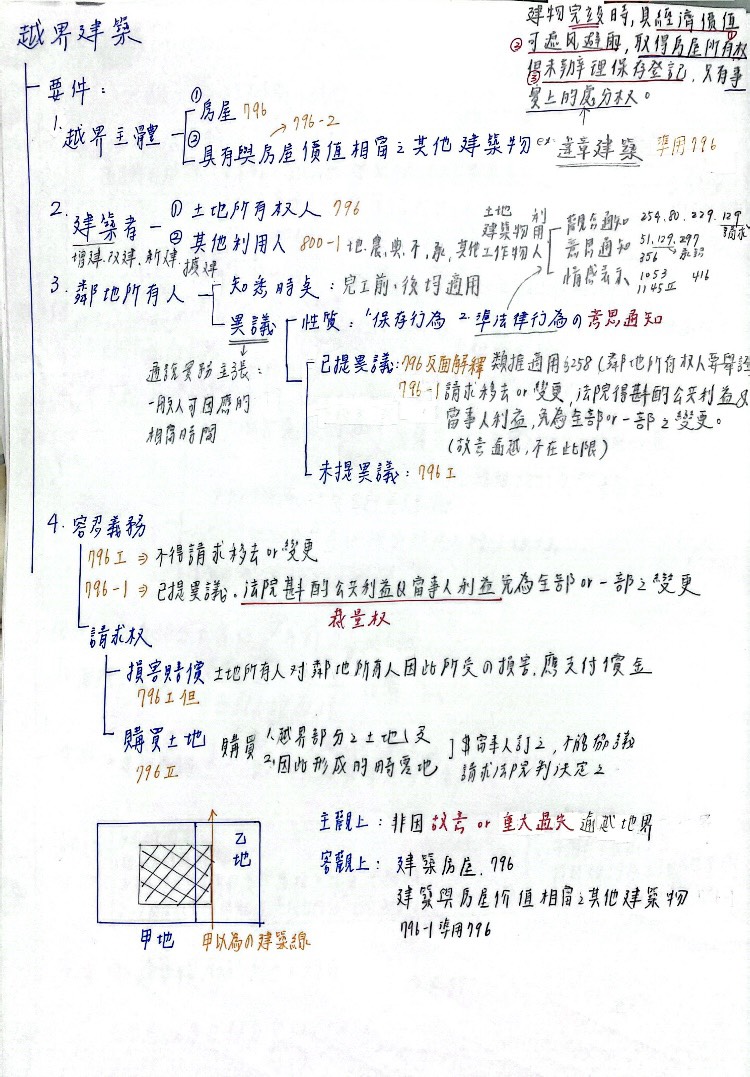 越界建築
建物完竣時,具經濟價值
②可遮風避雨,取得房屋所有權
③但未辦理保存登記,只有事
實上的處分權。
要件:
1. 越界主體
①房屋 796
796-2
②具有與房屋價值相當之其他建築物 ex 違章建築 準用796
2. 建築者
① 土地所有權人 796
② 其他利用人 800-1 地、農、典、不、承、其他
增建、改建、新建、擴建
土地 利
建築物 用
工作物 人
觀念通知 254.80.229.129
請求
意思通知 51.129.297
356 承認
情感表示 1053 416
1145Ⅱ
3. 鄰地所有人
知悉時矣:完工前、後均適用
異議
性質:1.保存行為 2.準法律行為の意思通知
通說實務主張:
一般人可因應的
相當時間
已提異議:796反面解釋 類推適用§258 (鄰地所有權人要舉證
796-1 請求移去or變更,法院得斟酌公共利益&
當事人利益,免為全部or一部之變更。
(故意逾越,不在此限)
未提異議:796Ⅰ
4. 容忍義務
796Ⅰ ⇒ 不得請求移去or變更
796-1 ⇒ 已提異議.法院斟酌公共利益&當事人利益免為全部or一部之變更
裁量权
請求权
損害賠償 土地所有人对鄰地所有人因此所受の損害.應支付償金
796Ⅰ但
購買土地 購買 1.越界部分之土地及
2.因此形成的畸零地
796Ⅱ
$當事人訂之,不能協議
請求法院判決定之
乙地
甲地
甲以為の建築線
主觀上:非因故意 or 重大過失逾越地界
客觀上:建築房屋.796
建築與房屋价值相當之其他建築物
796-1準用796